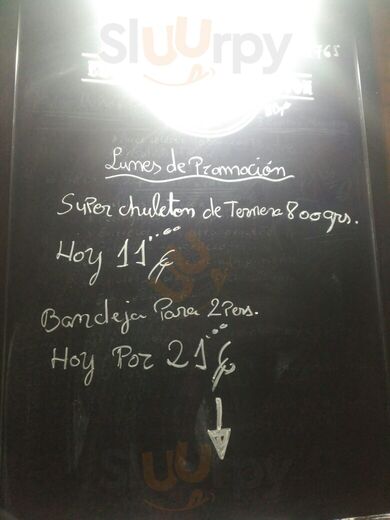 Sluurpy
765
Lunes de Promoción
Super chuleton de Ternera 800grs.
Hoy 11'00 €
Bandeja Para 2 Pers.
Hoy Por 21'00 €
Sluurpy